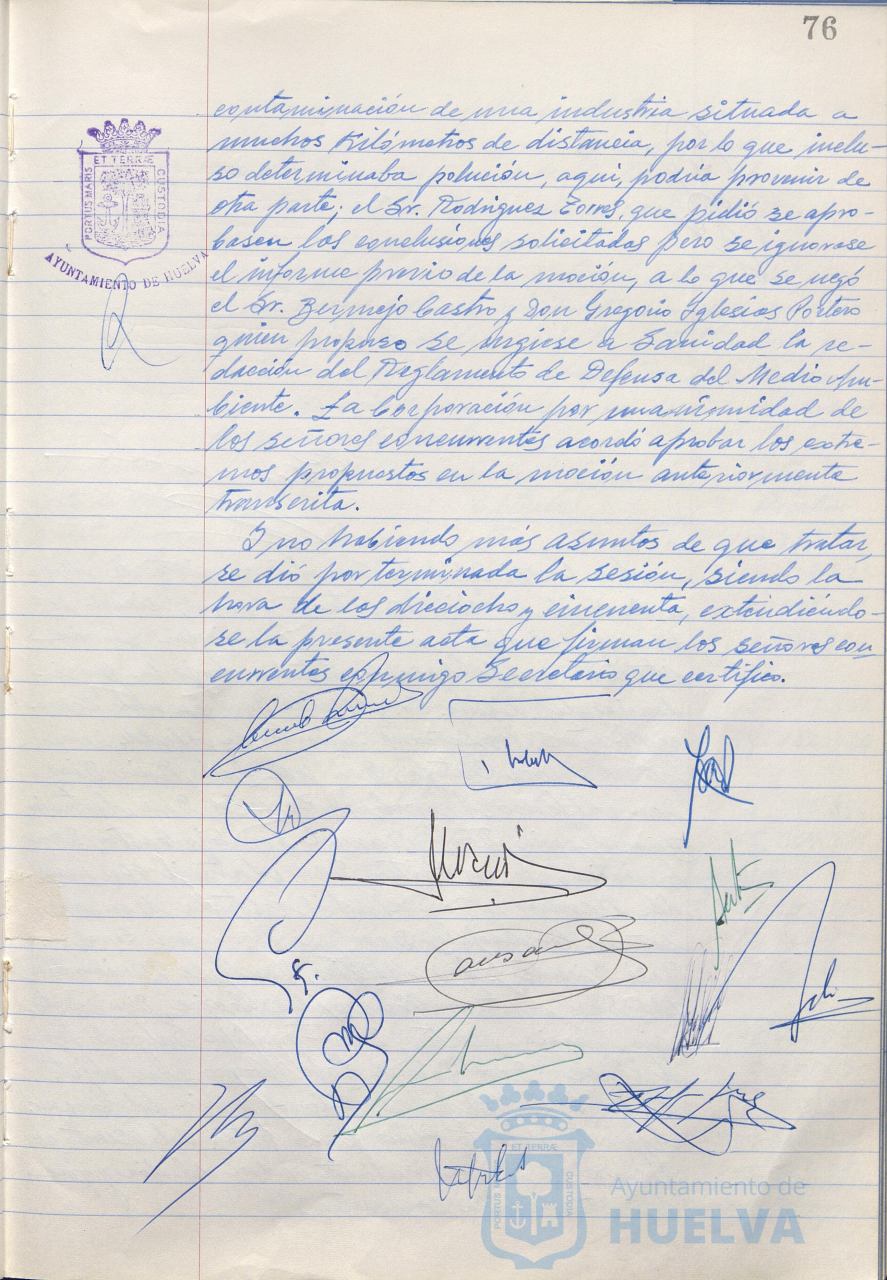 76
contaminación de una industria situada a
muchos Kilómetros de distancia, por lo que inclu-
so determinaba polución, aquí, podría provenir de
otra parte; el Sr. Rodriguez Torres, que pidió se apro-
basen las conclusiones solicitadas pero se ignorase
el informe previo de la moción, a lo que se negó
el Sr. Bermejo Castro y Don Gregorio Iglesias Portero
quien propuso se urgiese a Sanidad la re-
dacción del Reglamento de Defensa del Medio Am-
biente. La Corporación por unanimidad de
los señores concurrentes acordó aprobar los extre-
mos propuestos en la moción anteriormente
transcrita.
Y no habiendo más asuntos de que tratar,
se dió por terminada la sesión, siendo la
hora de las dieciocho y cincuenta, extendiéndo-
se la presente acta que firman los señores con
currentes conmigo Secretario que certifico.
PORTUS MARIS
ET TERRÆ
CUSTODIA
AYUNTAMIENTO DE HUELVA
PORTUS MARIS
ET TERRÆ
CUSTODIA
Ayuntamiento de
HUELVA